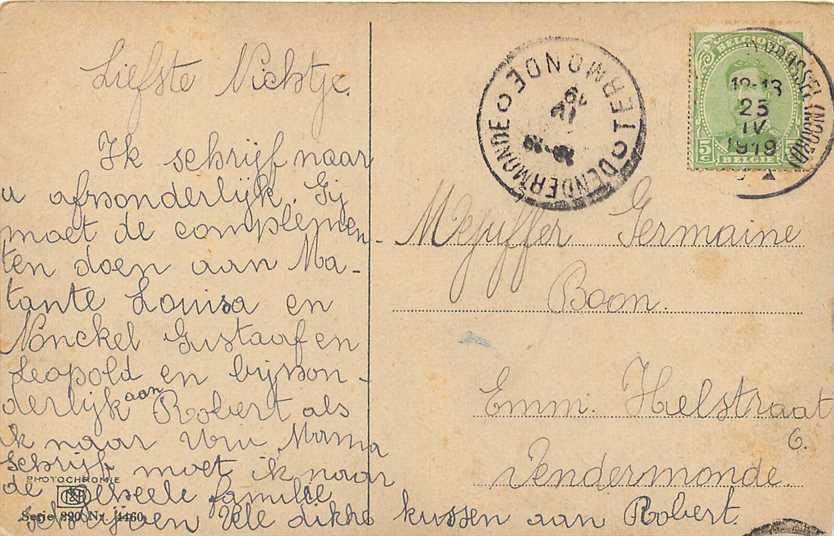 Liefste Nichtje.
Ik schrijf naar
u afsonderlijk. Gij
moet de complemen-
ten doen aan Ma-
tante Louisa en
Nonckel Gustaaf en
Leopold en bijson-
derlijk aan Robert als
ik naar Uw Mama
schrijf moet ik naar
de geheele familie
schrijven Vele dikke kussen aan Robert.
PHOTOCHROMIE
Serie 890 Nr. 4460
DENDERMONDE
TERMONDE
18-19
IV
19
BELGIQUE
BELGIË
5c
5c
BRUSSEL (NOORD)
12-13
25
IV
1919
Mejuffer Germaine
Boon.
Emm. Hielstraat
6.
Dendermonde.